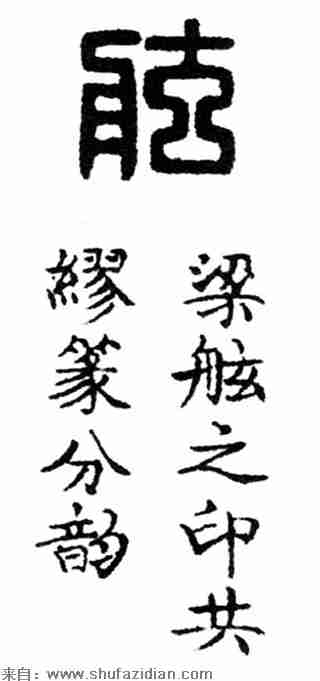 舷
梁舷之印共
繆篆分韵
来自：www.shufazidian.com